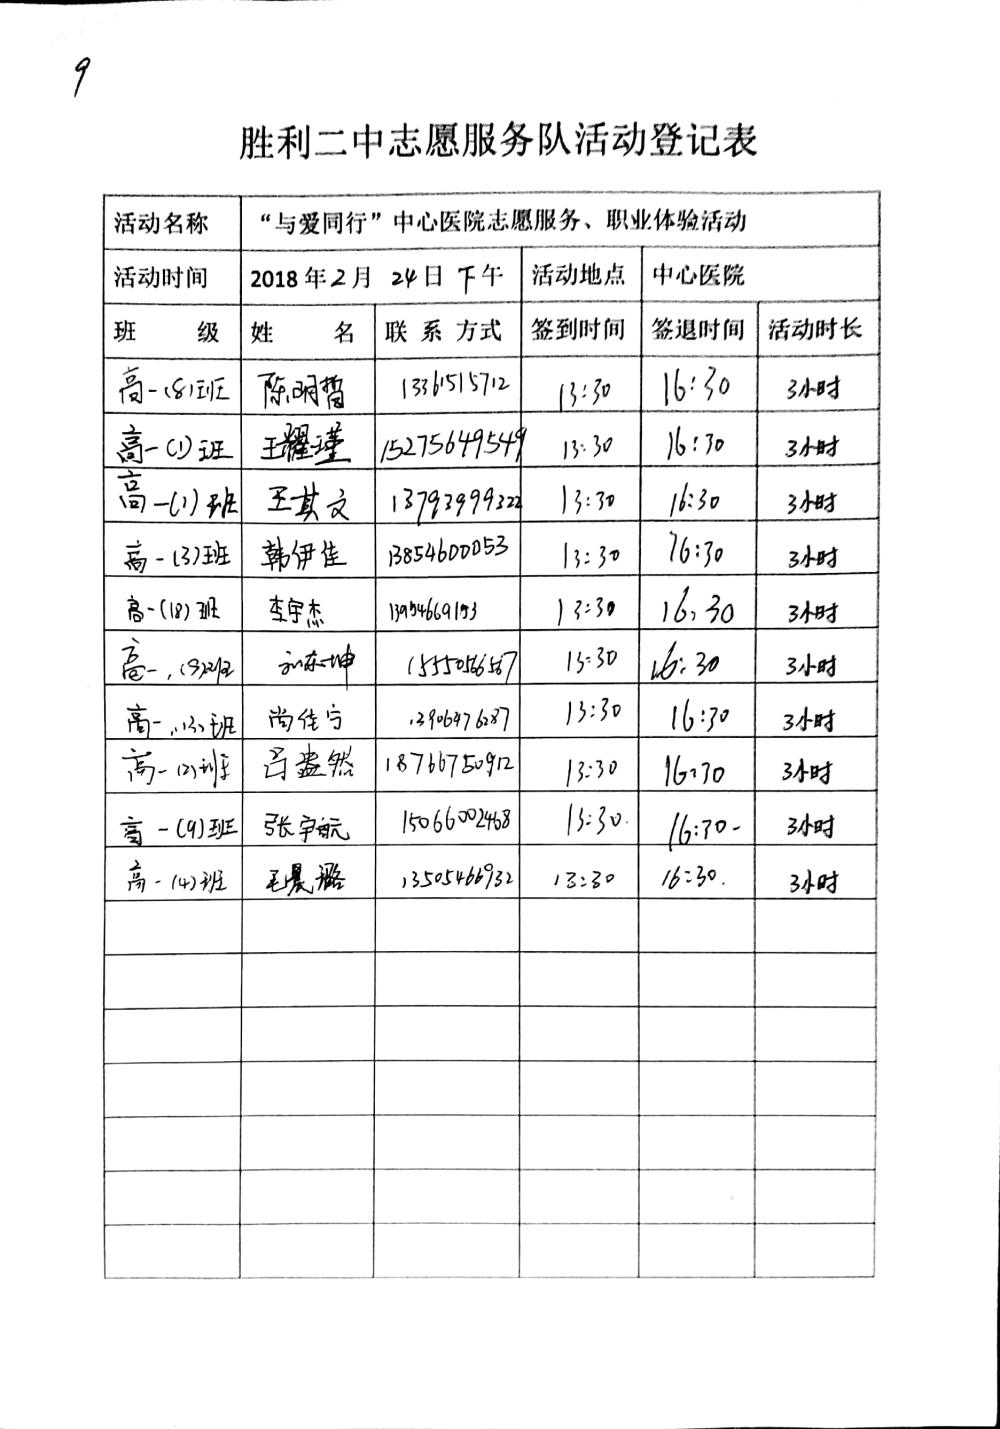 9
胜利二中志愿服务队活动登记表
活动名称 “与爱同行”中心医院志愿服务、职业体验活动
活动时间 2018年2月 24日 下午 活动地点 中心医院
班 级 姓 名 联 系 方式 签到时间 签退时间 活动时长
高一(8)班 陈明哲 13361515712 13:30 16:30 3小时
高一(1)班 王耀瑾 15275649549 13:30 16:30 3小时
高一(1)班 王其文 13793999322 13:30 16:30 3小时
高一(3)班 韩伊佳 13854600053 13:30 16:30 3小时
高一(18)班 李宇杰 13:30 16:30 3小时
高一 班 坤 13:30 16:30 3小时
高一(13)班 尚佳宁 13906476287 13:30 16:30 3小时
高一(2)班 吕盎然 18766750912 13:30 16:30 3小时
高一(9)班 张宇航 15066002468 13:30. 16:30- 3小时
高一(4)班 毛晨璐 13505466932 13:30 16:30. 3小时